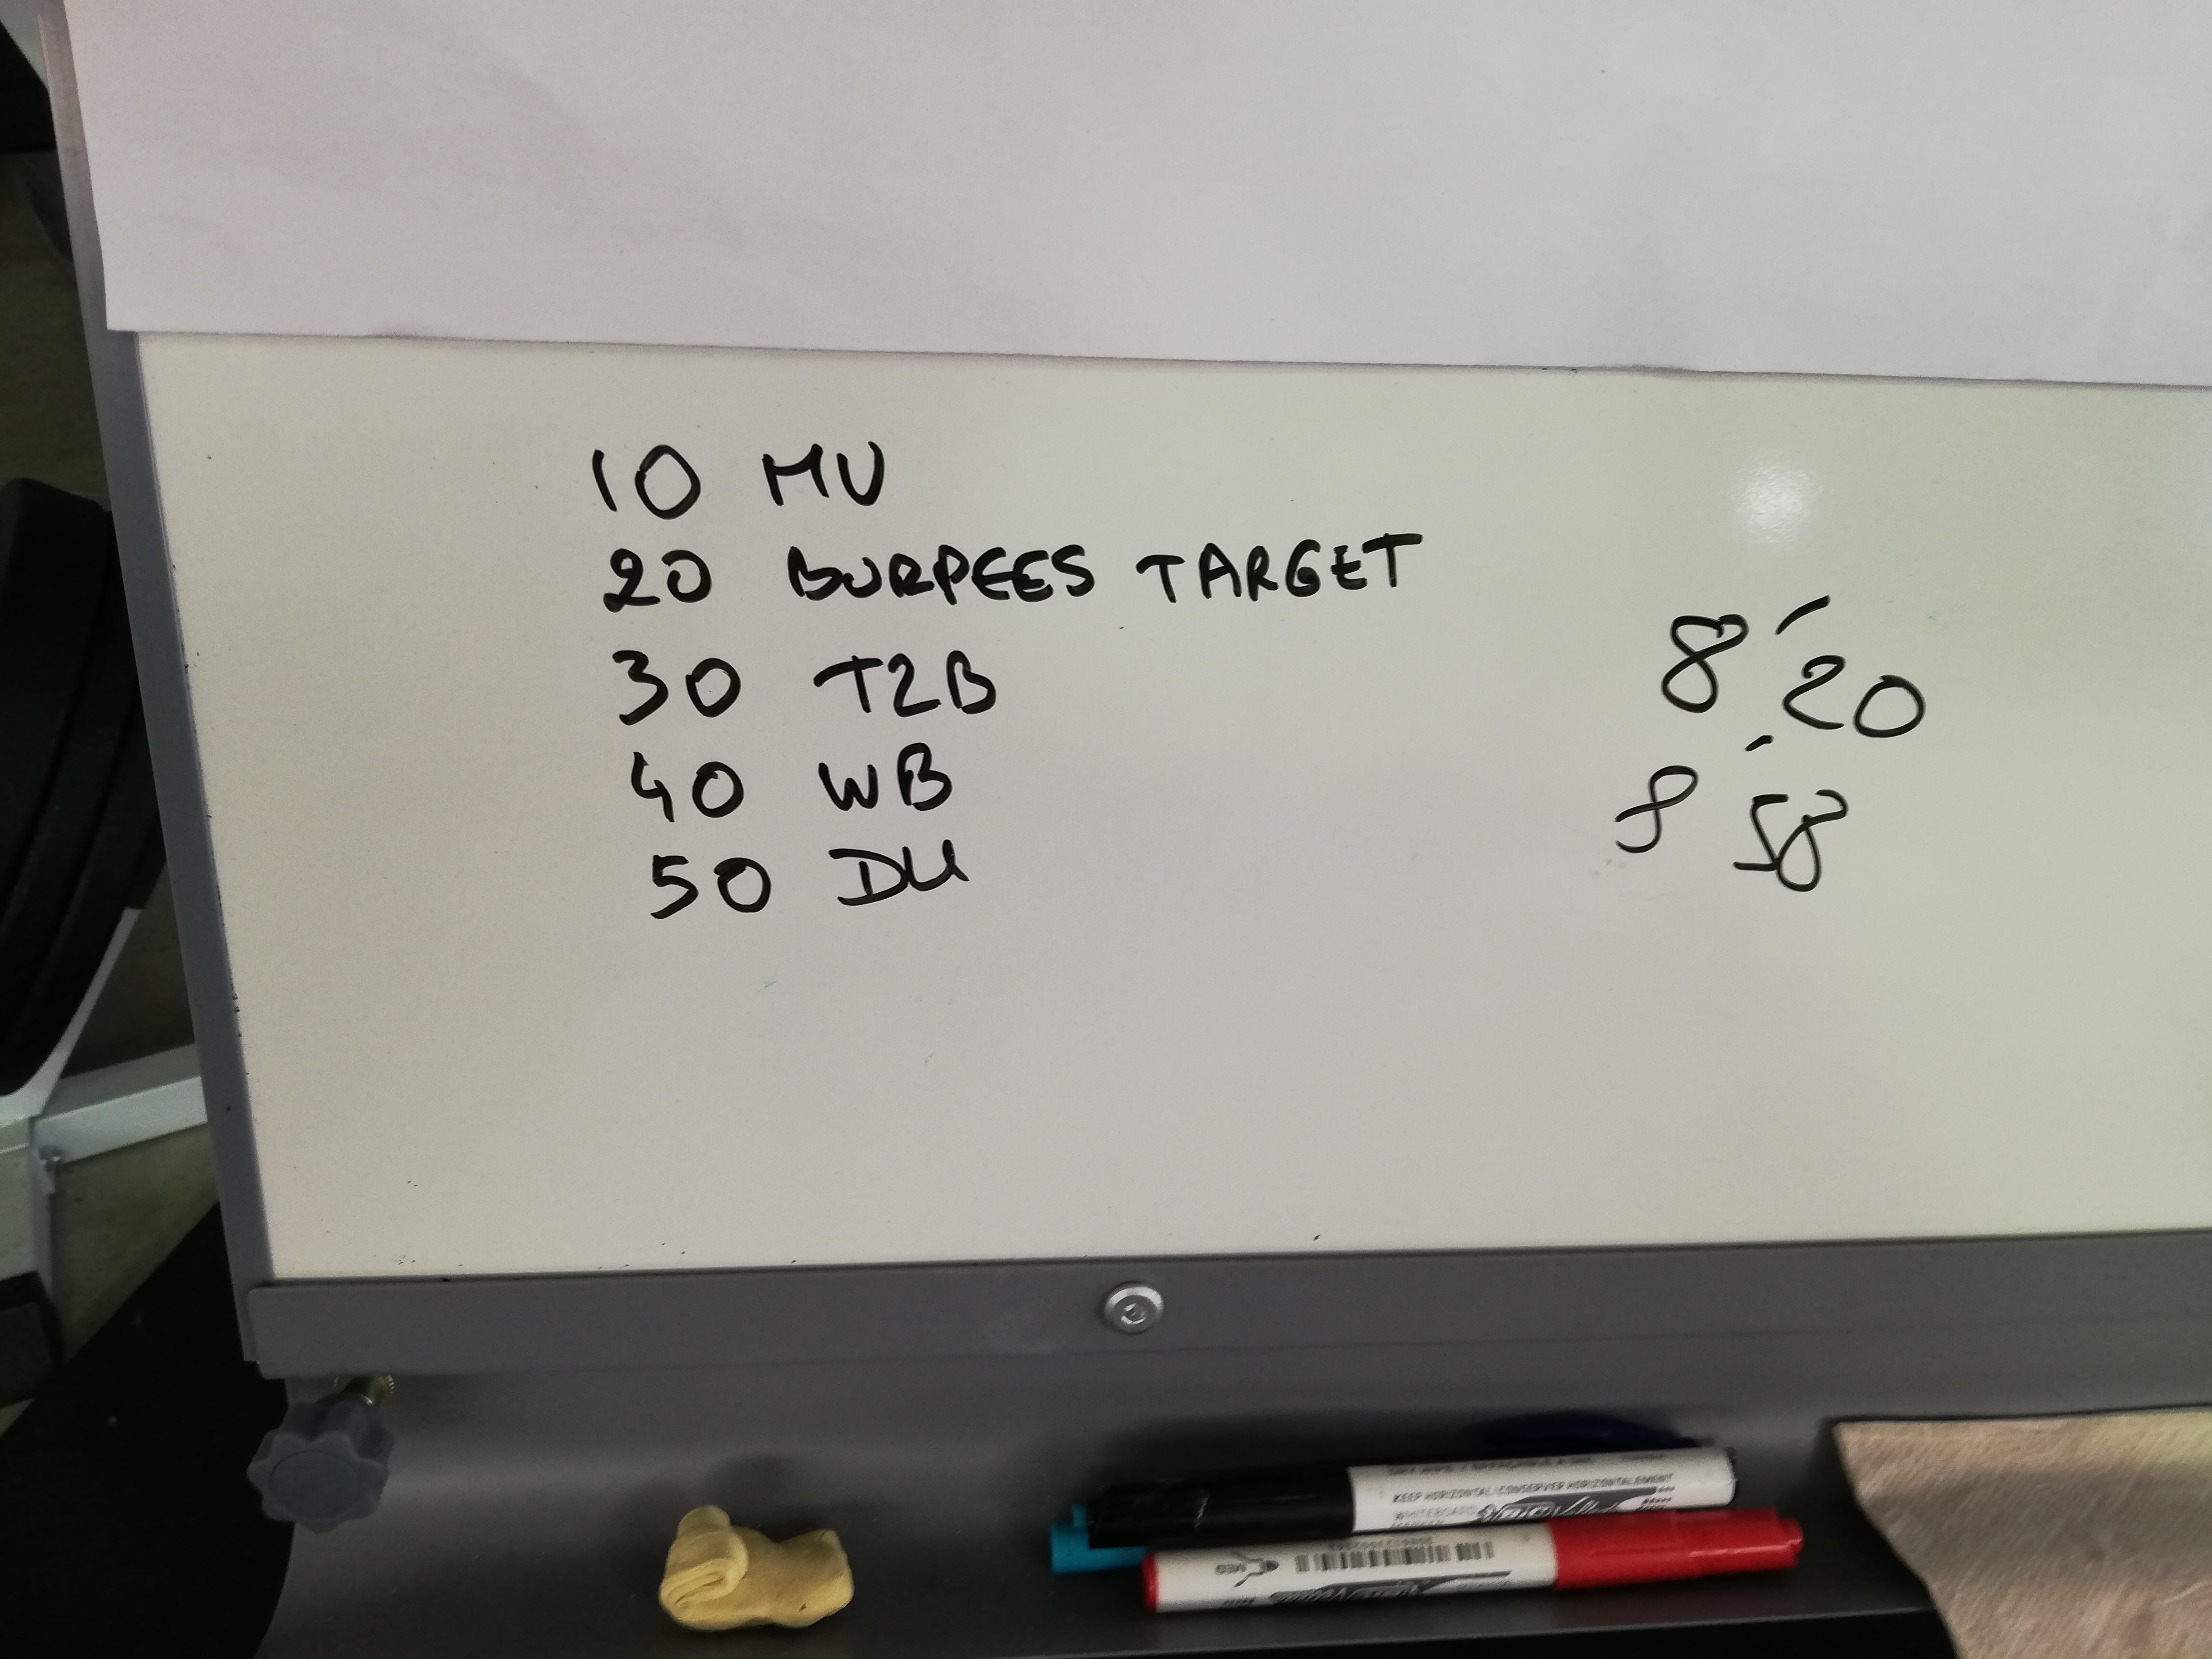 10 MU
20 BURPEES TARGET
30 T2B
40 WB
50 DU
8'20
8'58
KEEP HORIZONTAL/CONSERVER HORIZONTALEMENT
WHITEBOARD